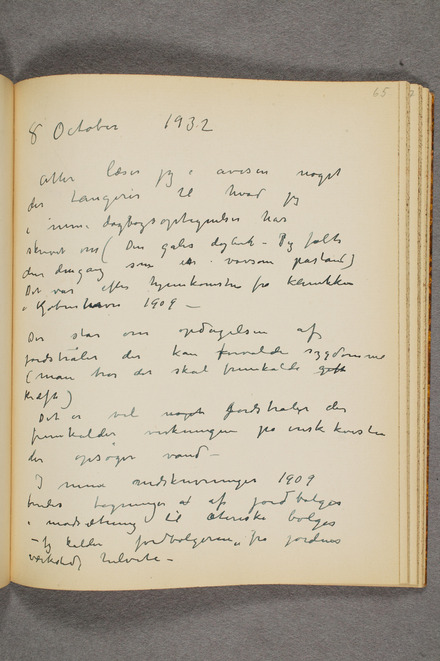 65
8 October 1932
Atter læser jeg i avisen noget
der tangerer til hvad jeg
i mine dagbogsoptegnelser har
skrevet om (Den gales dagbok - Jeg følte
den dengang som en vovsom pastand)
Det var efter hjemkomsten fra klinikken
i Kjøbenhavn 1909 -
Der star om opdagelsen af
jordstråler der kan forvolde sygdomme
(man tror det skal fremkalde
kræft)
Det er vel noget jordstraler der
fremkalder virkningen pa
der opsøger vand -
I mine nedskrivninger 1909
findes tegninger af jordbølger
i modsætning til æteriske bølger
- Jeg kalder jordbølgerne, fra jordens
helvete -